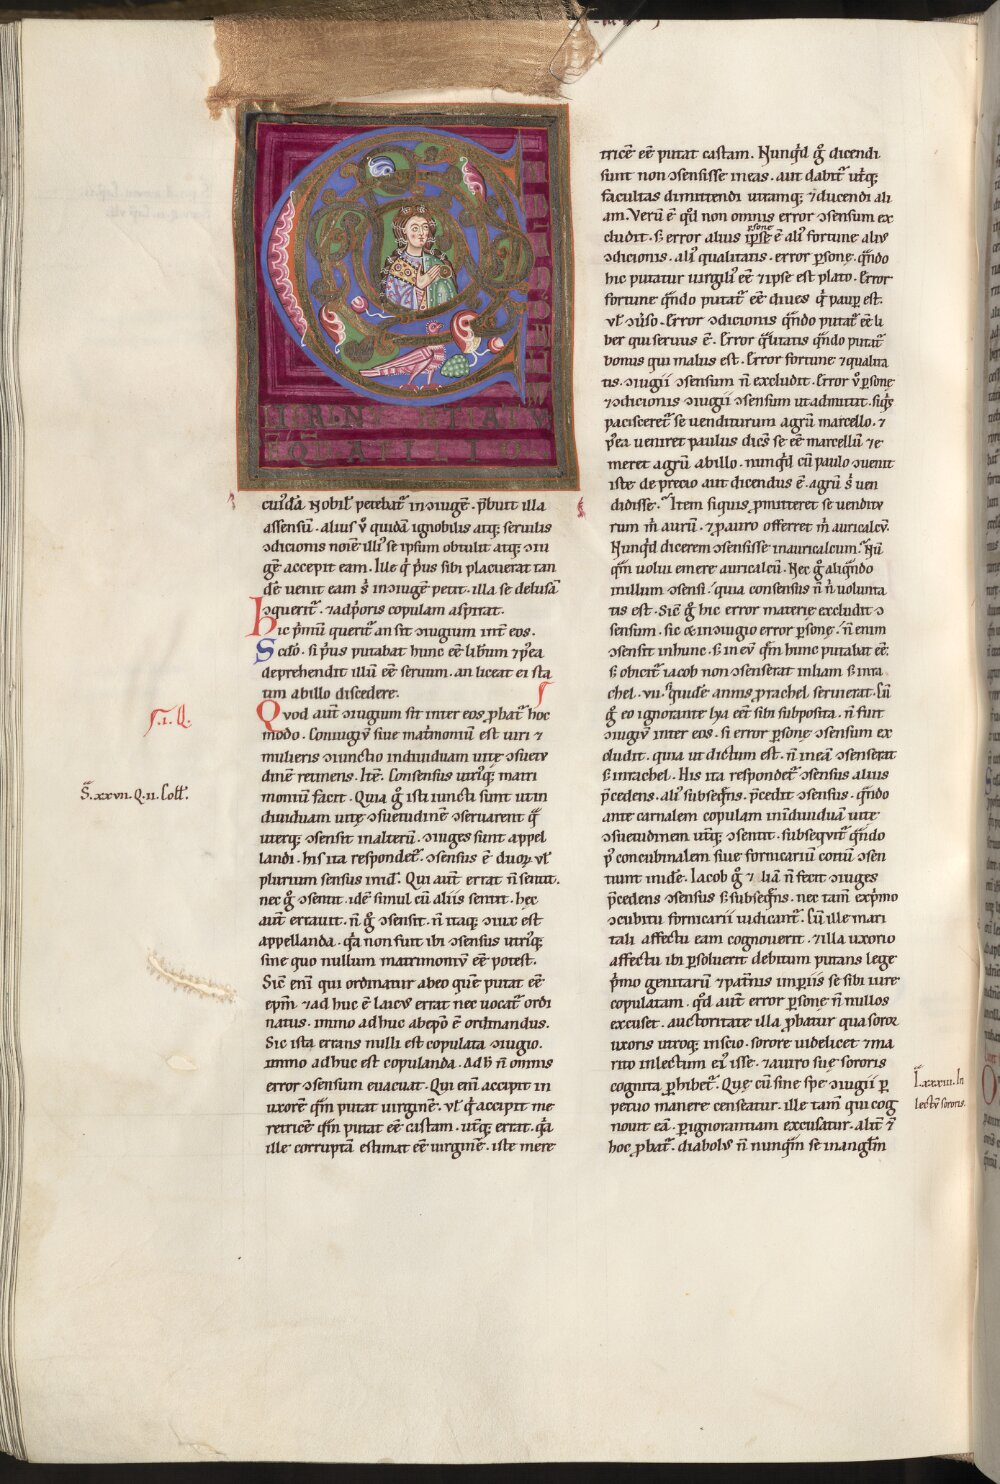 cuidā Nobil' petebat᷑ in ↄiugē. p̄buit illa
assensū. alius v̊ quidā ignobilis atq; seruilis
ↄdicionis noīe illi' se ipsum obtulit atq; ↄiu
gē accepit eam. Ille q̇ p'us sibi placuerat tan
dē uenit eam s̄ in ↄiugē petit. illa se delusā
ↄquerit᷑. ⁊ ad p'oris copulam aspirat.
hic p'mū querit᷑ an sit ↄiugium int̄ eos.
Scd̊o. si p'us putabat hunc eē lib̄um ⁊ p̊ea
deprehendit illū eē seruum. an liceat ei sta
tim ab illo discedere.
Quod aut̄ ↄiugium sit inter eos ꝓbat᷑ hoc
modo. Coniugiū siue mat'moniū est uiri ⁊
mulieris ↄiunctio indiuiduam uitę ↄsuetu
dinē retinens. Itē. Consensus utri'q; matri
monium facit. Quia g̊ isti iuncti sunt ut in
diuiduam uitę ↄsuetudinē ↄseruarent q̄
uterq; ↄsensit in alterū. ↄiuges sunt appel
landi. his ita respondet᷑. ↄsensus ē duoꝝ ul'
plurium sensus in id'. Qui aut̄ errat n̄ sentit.
nec g̊ ↄsentit. idē simul cū aliis sentit. hęc
aut̄ errauit. n̄ g̊ ↄsensit. n̄ itaq; ↄiux est
appellanda. q̇a non fuit ibi ↄsensus utri'q;
sine quo nullum matrimoniū eē potest.
Sic̄ eni᷑ qui ordinatur ab eo quē putat eē
ep̄m ⁊ adhuc ē laicus errat nec uocat᷑ ordi
natus. immo adhuc ab ep̄o ē ordinandus.
Sic ista errans nulli est copulata ↄiugio.
immo adhuc est copulanda. Ad h̄ n̄ omnis
error ↄsensum euacuat. Qui eni᷑ accipit in
uxorē q̄m putat uirginē. ul' q̇ accipit me
retricē q̄m putat eē castam. ut'q; errat. q̇a
ille corruptā estimat eē uirginē. iste mere
tricē eē putat castam. Nunq'd g̊ dicendi
sunt non ↄsensisse in eas. aut dabit᷑ utri'q;
facultas dimittendi utramq; ⁊ ducendi ali
am. Verū ē q'd non omnis error ↄsensum ex
cludit. s; error alius ipsę ē psonę ali' fortune alius
ↄdicionis. ali' qualitatis. error ꝑsonę. q̄ndo
hic putatur uirgili' eē ⁊ ipse est plato. Error
fortune q̄ndo putat᷑ eē diues q̇ paup̄ est.
ul' ↄu'so. Error ↄdicionis q̄ndo putat᷑ eē li
ber qui seruus ē. Error q̄litatis q̄ndo putat᷑
bonus qui malus est. Error fortune ⁊ qualita
tis. ↄiugii ↄsensum n̄ excludit. Error v̊ ꝑsonę
⁊ ↄdicionis ↄiugii ↄsensum ut admittit. siq's
pacisceret᷑ se uenditurum agrū marcello. ⁊
p̊ea ueniret paulus dic̄s se eē marcellū ⁊ e
meret agrū ab illo. nunq'd cū paulo ↄuenit
iste de precio aut dicendus ē agrū s̄ uen
didisse. Item siquis ꝓmitteret se uenditu
rum m̄ aurū. ⁊ p auro offerret m̄ auricalcū.
Nunq'd dicerem ↄsensisse in auricalcum. Nū
q̄m uolui emere auricalcū. Nec g̊ aliq̄ndo
in illum ↄsensi. quia consensus n̄ n̄ uolunta
tis est. Sic̄ g̊ hic error materię excludit ↄ
sensum. sic ⁊ in ↄiugio error ꝑsonę. n̄ enim
ↄsensit in hunc. s; in eū q̄m hunc putabat eē.
s; obicit᷑ iacob non ↄsenserat in liam s; in ra
chel. vii. quidē annis ꝓ rachel seruierat. Cū
g̊ eo ignorante lya eēt sibi subposita. n̄ fuit
ↄiugiū inter eos. si error ꝑsonę ↄsensum ex
cludit. quia ut dictum est. n̄ in eā ↄsenserat
s; in rachel. His ita respondet᷑ ↄsensus alius
p̄cedens. ali' subseq̄ns. p̄cedit ↄsensus. q̄ndo
ante carnalem copulam in indiuiduā uitę
ↄsuetudinem ut'q; ↄsentit. subsequit᷑ q̄ndo
p' concubinalem siue fornicariū coitū ↄsen
tiunt in idē. Iacob g̊ ⁊ liā n̄ fecit ↄiuges
p̄cedens ↄsensus s; subseq̄ns. nec tam̄ ex p'mo
ↄcubitu fornicarii iudicant᷑. Cū ille mari
tali affectu eam cognouerit. ⁊ illa uxorio
affectu ibi ꝑsoluerit debitum putans lege
p'mo genitarū ⁊ pat'nis imp̄iis se sibi iure
copulatam. q'd aut̄ error ꝑsonę n̄ nullos
excuset. auctoritate illa ꝓbatur qua soror
uxoris utroq; inscio. sorore uidelicet ⁊ ma
rito in lectum ei' isse. ⁊ a uiro suę sororis
cognita ꝑhibet᷑. Quę cū sine spe ↄiugii ꝑ
petuo manere censeatur. ille tam̄ qui cog
nouit eā. ꝑ ignorantiam excusatur. alit̄ ⁊
hoc ꝓbat᷑. diabolus n̄ nunq̄m se in angl'm
.I. Q.
S̄. xxvii. Q. ii. Coll'.
I. xxxiii. In
lectū sororis.